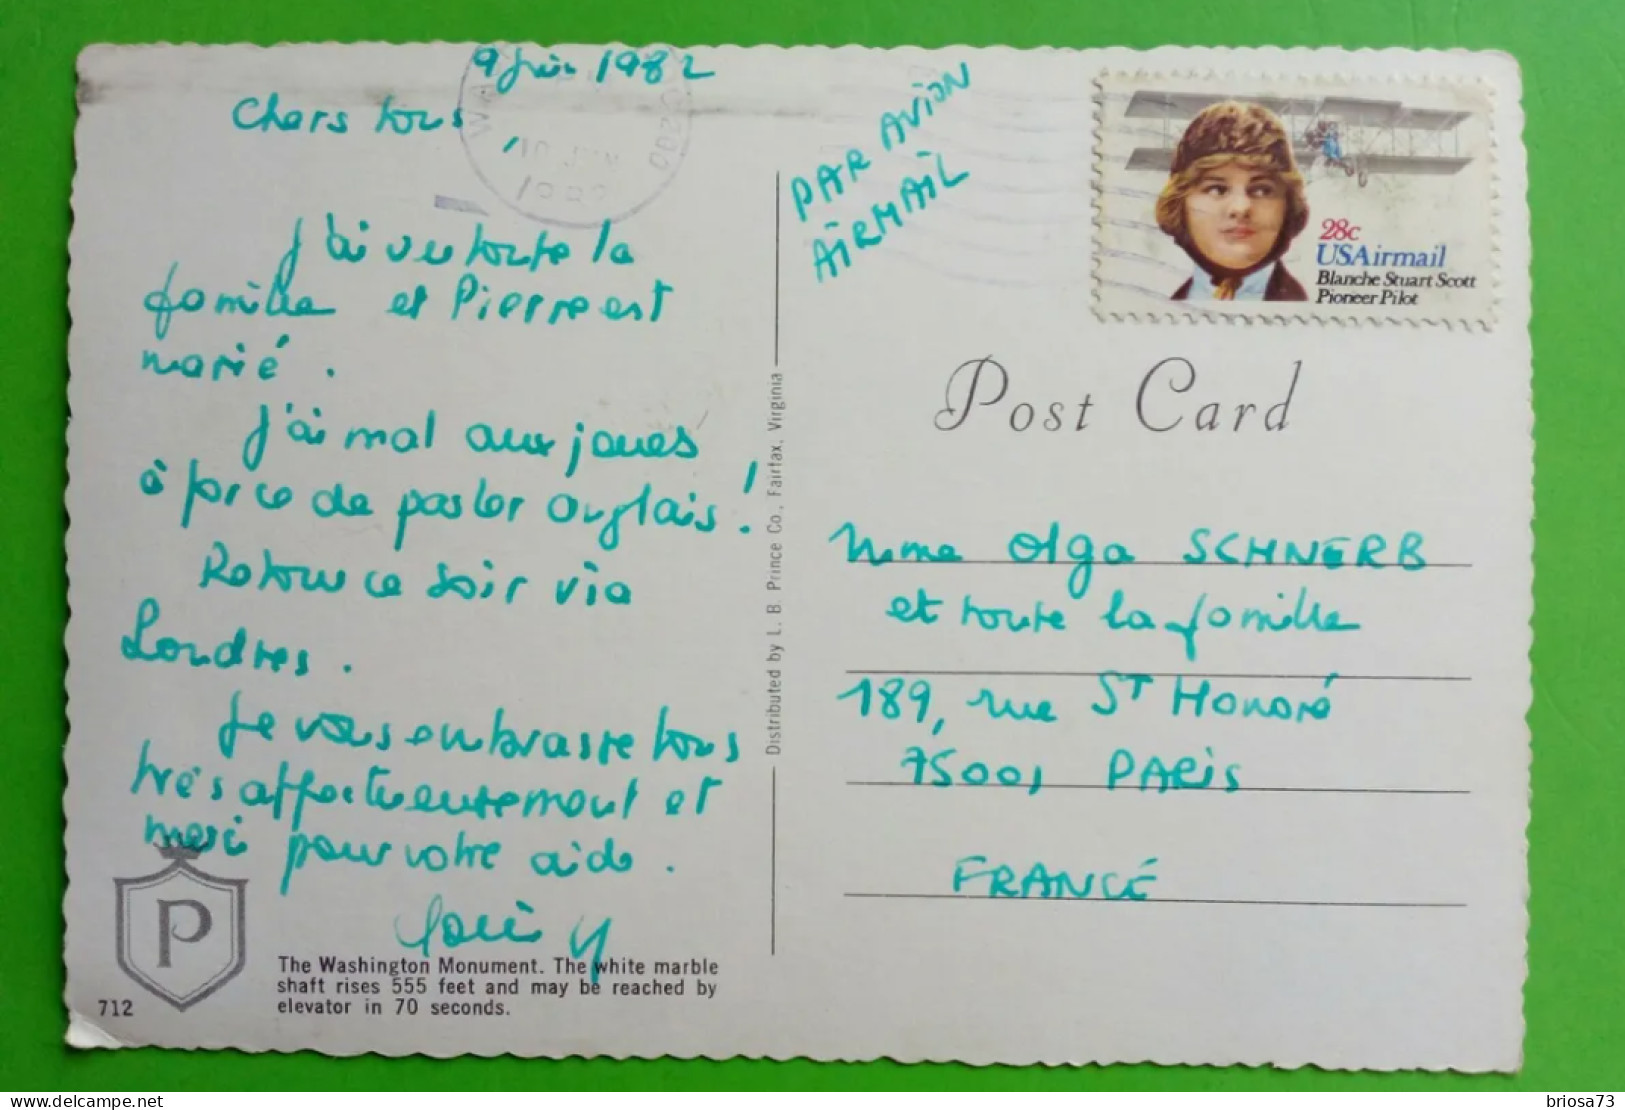 9 juin 1982
Chers tous
WA
200
10 JUN
1982
J'ai vu toute la
famille et Pierre est
marié.
J'ai mal aux joues
à force de parler anglais !
Retour ce soir via
Londres.
Je vous embrasse tous
très affectueusement et
merci pour votre aide.
P
The Washington Monument. The white marble
shaft rises 555 feet and may be reached by
elevator in 70 seconds.
712
Distributed by L. B. Prince Co., Fairfax, Virginia
PAR AVION
AIRMAIL
28c
USAirmail
Blanche Stuart Scott
Pioneer Pilot
Post Card
Mme Olga SCHNERB
et toute la famille
189, rue ST Honoré
75001 PARIS
FRANCE
briosa73